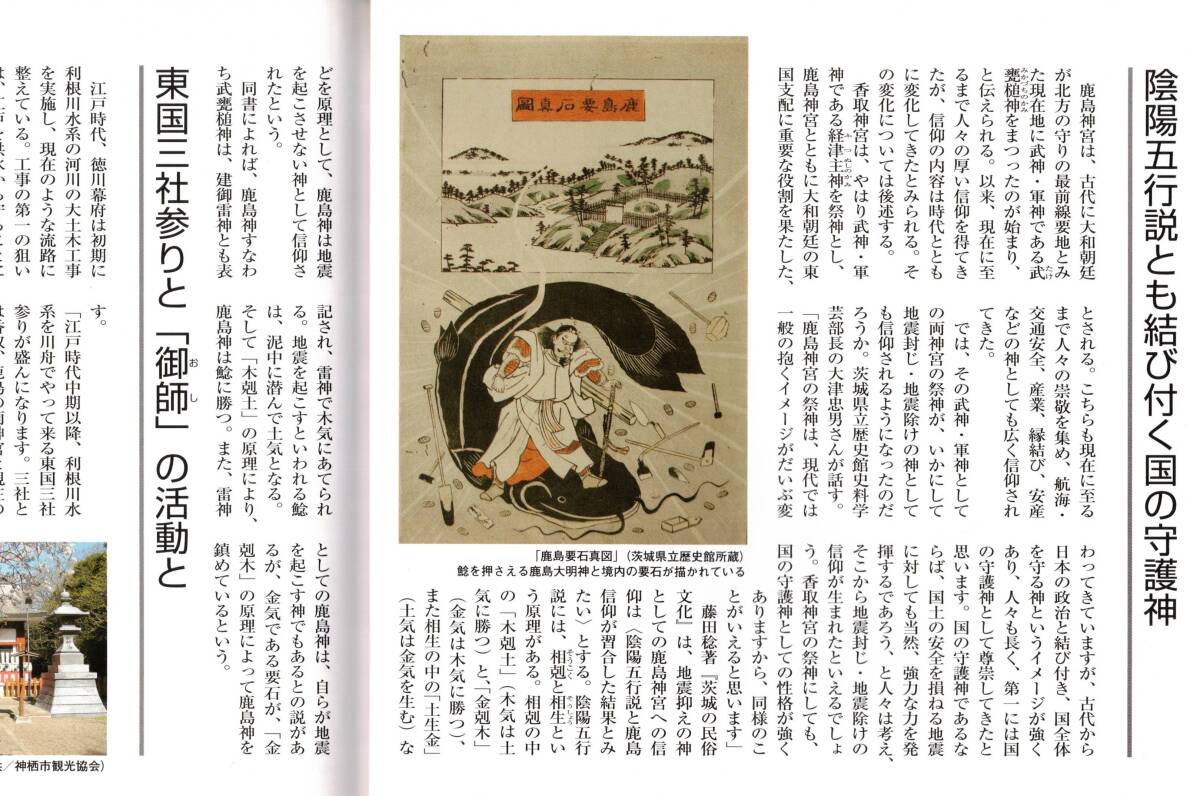 陰陽五行説とも結び付く国の守護神
鹿島神宮は、古代に大和朝廷
が北方の守りの最前線要地とみ
た現在地に武神・軍神である武
甕槌神をまつったのが始まり、
と伝えられる。以来、現在に至
るまで人々の厚い信仰を得てき
たが、信仰の内容は時代ととも
に変化してきたとみられる。そ
の変化については後述する。
香取神宮は、やはり武神・軍
神である経津主神を祭神とし、
鹿島神宮とともに大和朝廷の東
国支配に重要な役割を果たした、
とされる。こちらも現在に至る
まで人々の崇敬を集め、航海・
交通安全、産業、縁結び、安産
などの神としても広く信仰され
てきた。
では、その武神・軍神として
の両神宮の祭神が、いかにして
地震封じ・地震除けの神として
も信仰されるようになったのだ
ろうか。茨城県立歴史館史料学
芸部長の大津忠男さんが話す。
「鹿島神宮の祭神は、現代では
一般の抱くイメージがだいぶ変
わってきていますが、古代から
日本の政治と結び付き、国全体
を守る神というイメージが強く
あり、人々も長く、第一には国
の守護神として尊崇してきたと
思います。国の守護神であるな
らば、国土の安全を損ねる地震
に対しても当然、強力な力を発
揮するであろう、と人々は考え、
そこから地震封じ・地震除けの
信仰が生まれたといえるでしょ
う。香取神宮の祭神にしても、
国の守護神としての性格が強く
ありますから、同様のこ
とがいえると思います」
藤田稔著『茨城の民俗
文化』は、地震抑えの神
としての鹿島神宮への信
仰は〈陰陽五行説と鹿島
信仰が習合した結果とみ
たい〉とする。陰陽五行
説には、相剋と相生とい
う原理がある。相剋の中
の「木剋土」（木気は土
気に勝つ）と、「金剋木」
（金気は木気に勝つ）、
また相生の中の「土生金」
（土気は金気を生む）な
鹿島要石真圖
「鹿島要石真図」（茨城県立歴史館所蔵）
鯰を押さえる鹿島大明神と境内の要石が描かれている
どを原理として、鹿島神は地震
を起こさせない神として信仰さ
れたという。
同書によれば、鹿島神すなわ
ち武甕槌神は、建御雷神とも表
記され、雷神で木気にあてられ
る。地震を起こすといわれる鯰
は、泥中に潜んで土気となる。
そして「木剋土」の原理により、
鹿島神は鯰に勝つ。また、雷神
としての鹿島神は、自らが地震
を起こす神でもあるとの説があ
るが、金気である要石が、「金
剋木」の原理によって鹿島神を
鎮めているという。
東国三社参りと「御師」の活動と
江戸時代、徳川幕府は初期に
利根川水系の河川の大土木工事
を実施し、現在のような流路に
整えている。工事の第一の狙い
す。
「江戸時代中期以降、利根川水
系を川舟でやって来る東国三社
参りが盛んになります。三社と
／神栖市観光協会）